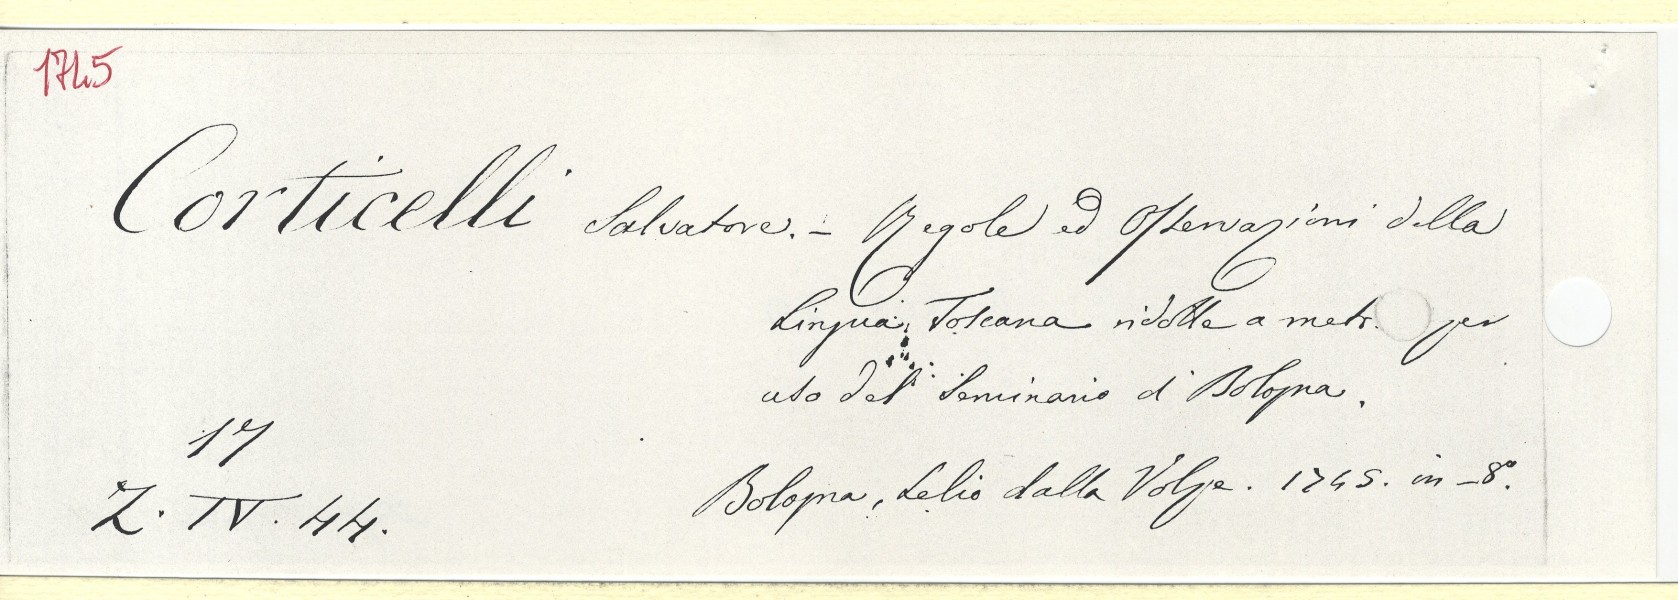 1745
Corticelli Salvatore. - Regole ed Osservazioni della
Lingua Toscana ridotte a met. per
uso del Seminario di Bologna.
17
Bologna, Lelio dalla Volpe. 1745. in-8º.
Z. IV. 44.